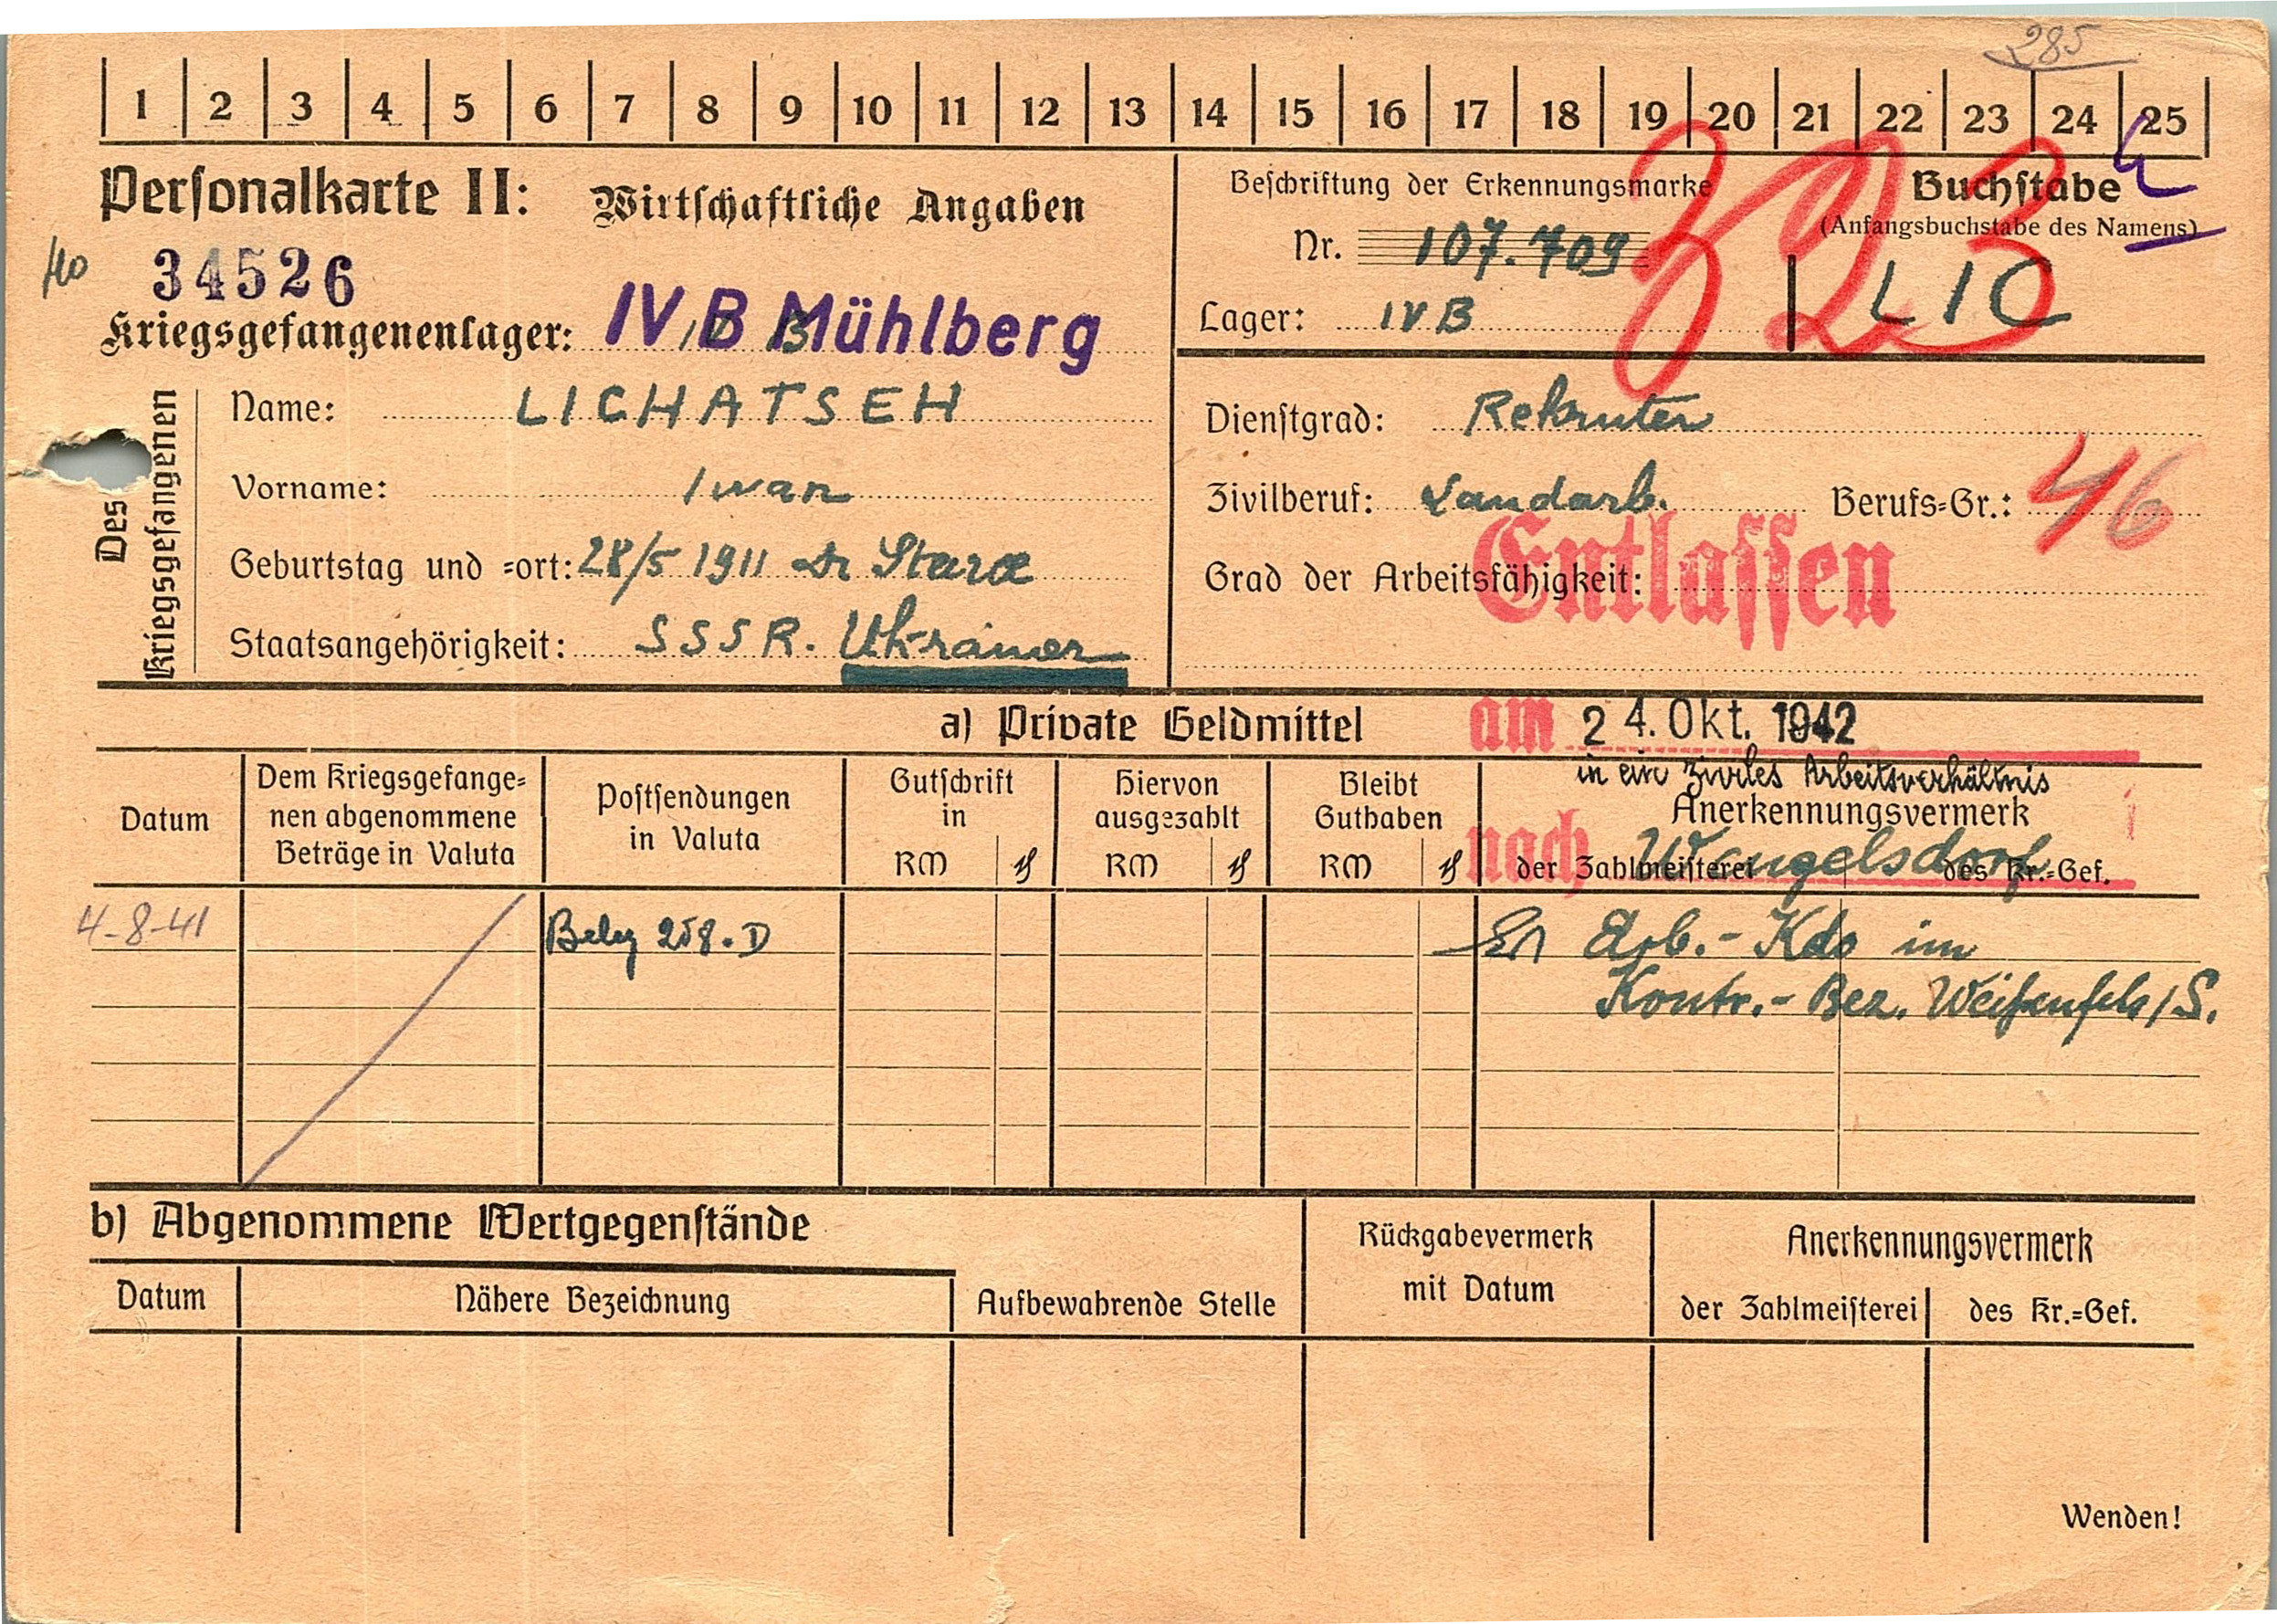 285
1 2 3 4 5 6 7 8 9 10 11 12 13 14 15 16 17 18 19 20 21 22 23 24 25
Personalkarte II: Wirtschaftliche Angaben
34526
Kriegsgefangenenlager: IV B Mühlberg
Beschriftung der Erkennungsmarke
Nr. 107.709
Lager: IV B
Buchstabe
(Anfangsbuchstabe des Namens)
LIC
323
Des Kriegsgefangenen
Name: LICHATSEH
Vorname: Iwan
Geburtstag und =ort: 28/5 1911 Stara
Staatsangehörigkeit: SSSR. Ukrainer
Dienstgrad: Rekruten
Zivilberuf: Landarb. Berufs=Gr.: 46
Grad der Arbeitsfähigkeit:
Entlassen
am 24. Okt. 1942
in ein ziviles Arbeitsverhältnis
nach Wengelsdorf
a) Private Geldmittel
Datum
Dem Kriegsgefange=
nen abgenommene
Beträge in Valuta
Postsendungen
in Valuta
Gutschrift
in
RM ₰
Hiervon
ausgezahlt
RM ₰
Bleibt
Guthaben
RM ₰
Anerkennungsvermerk
der Zahlmeisterei des Kr.=Gef.
4-8-41 Beleg 258. D
Arb.- Kdo im
Kontr.- Bez. Weißenfels/S.
b) Abgenommene Wertgegenstände
Datum
Nähere Bezeichnung
Aufbewahrende Stelle
Rückgabevermerk
mit Datum
Anerkennungsvermerk
der Zahlmeisterei des Kr.=Gef.
Wenden!